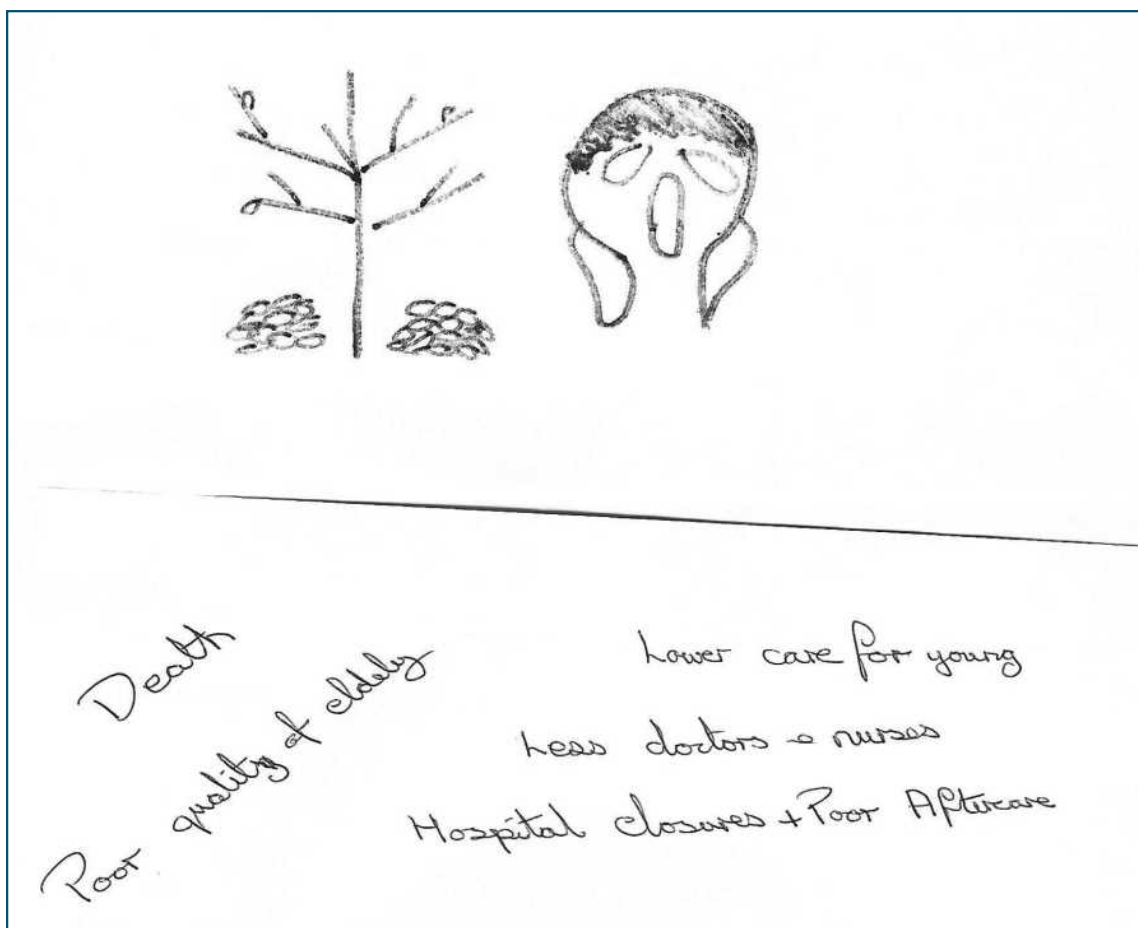 Death
Poor quality of eldely
Lower care for young
Less doctors & nurses
Hospital closures + Poor Aftercare